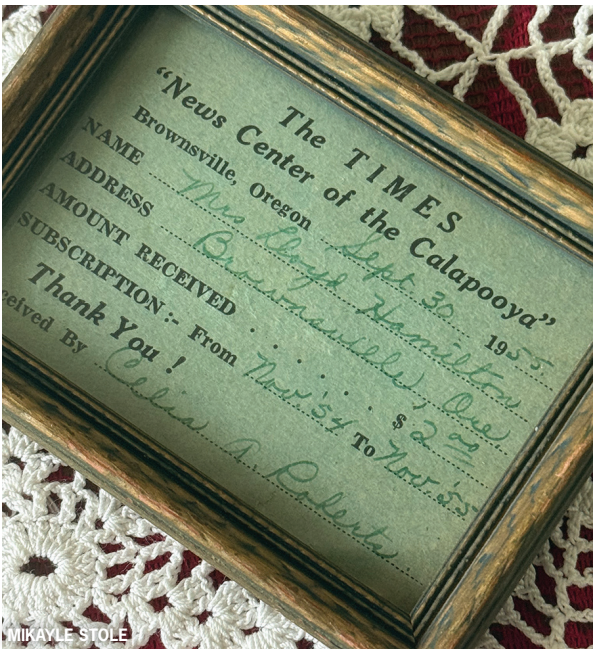 The TIMES
“News Center of the Calapooya”
Brownsville, Oregon Sept 30 1955
NAME Mrs Lloyd Hamilton
ADDRESS Brownsville, Ore
AMOUNT RECEIVED . . . . . . . $ 2 00
SUBSCRIPTION:- From Nov '54 To Nov. '55
Thank You !
ceived By Celia A. Roberts.
MIKAYLE STOLE